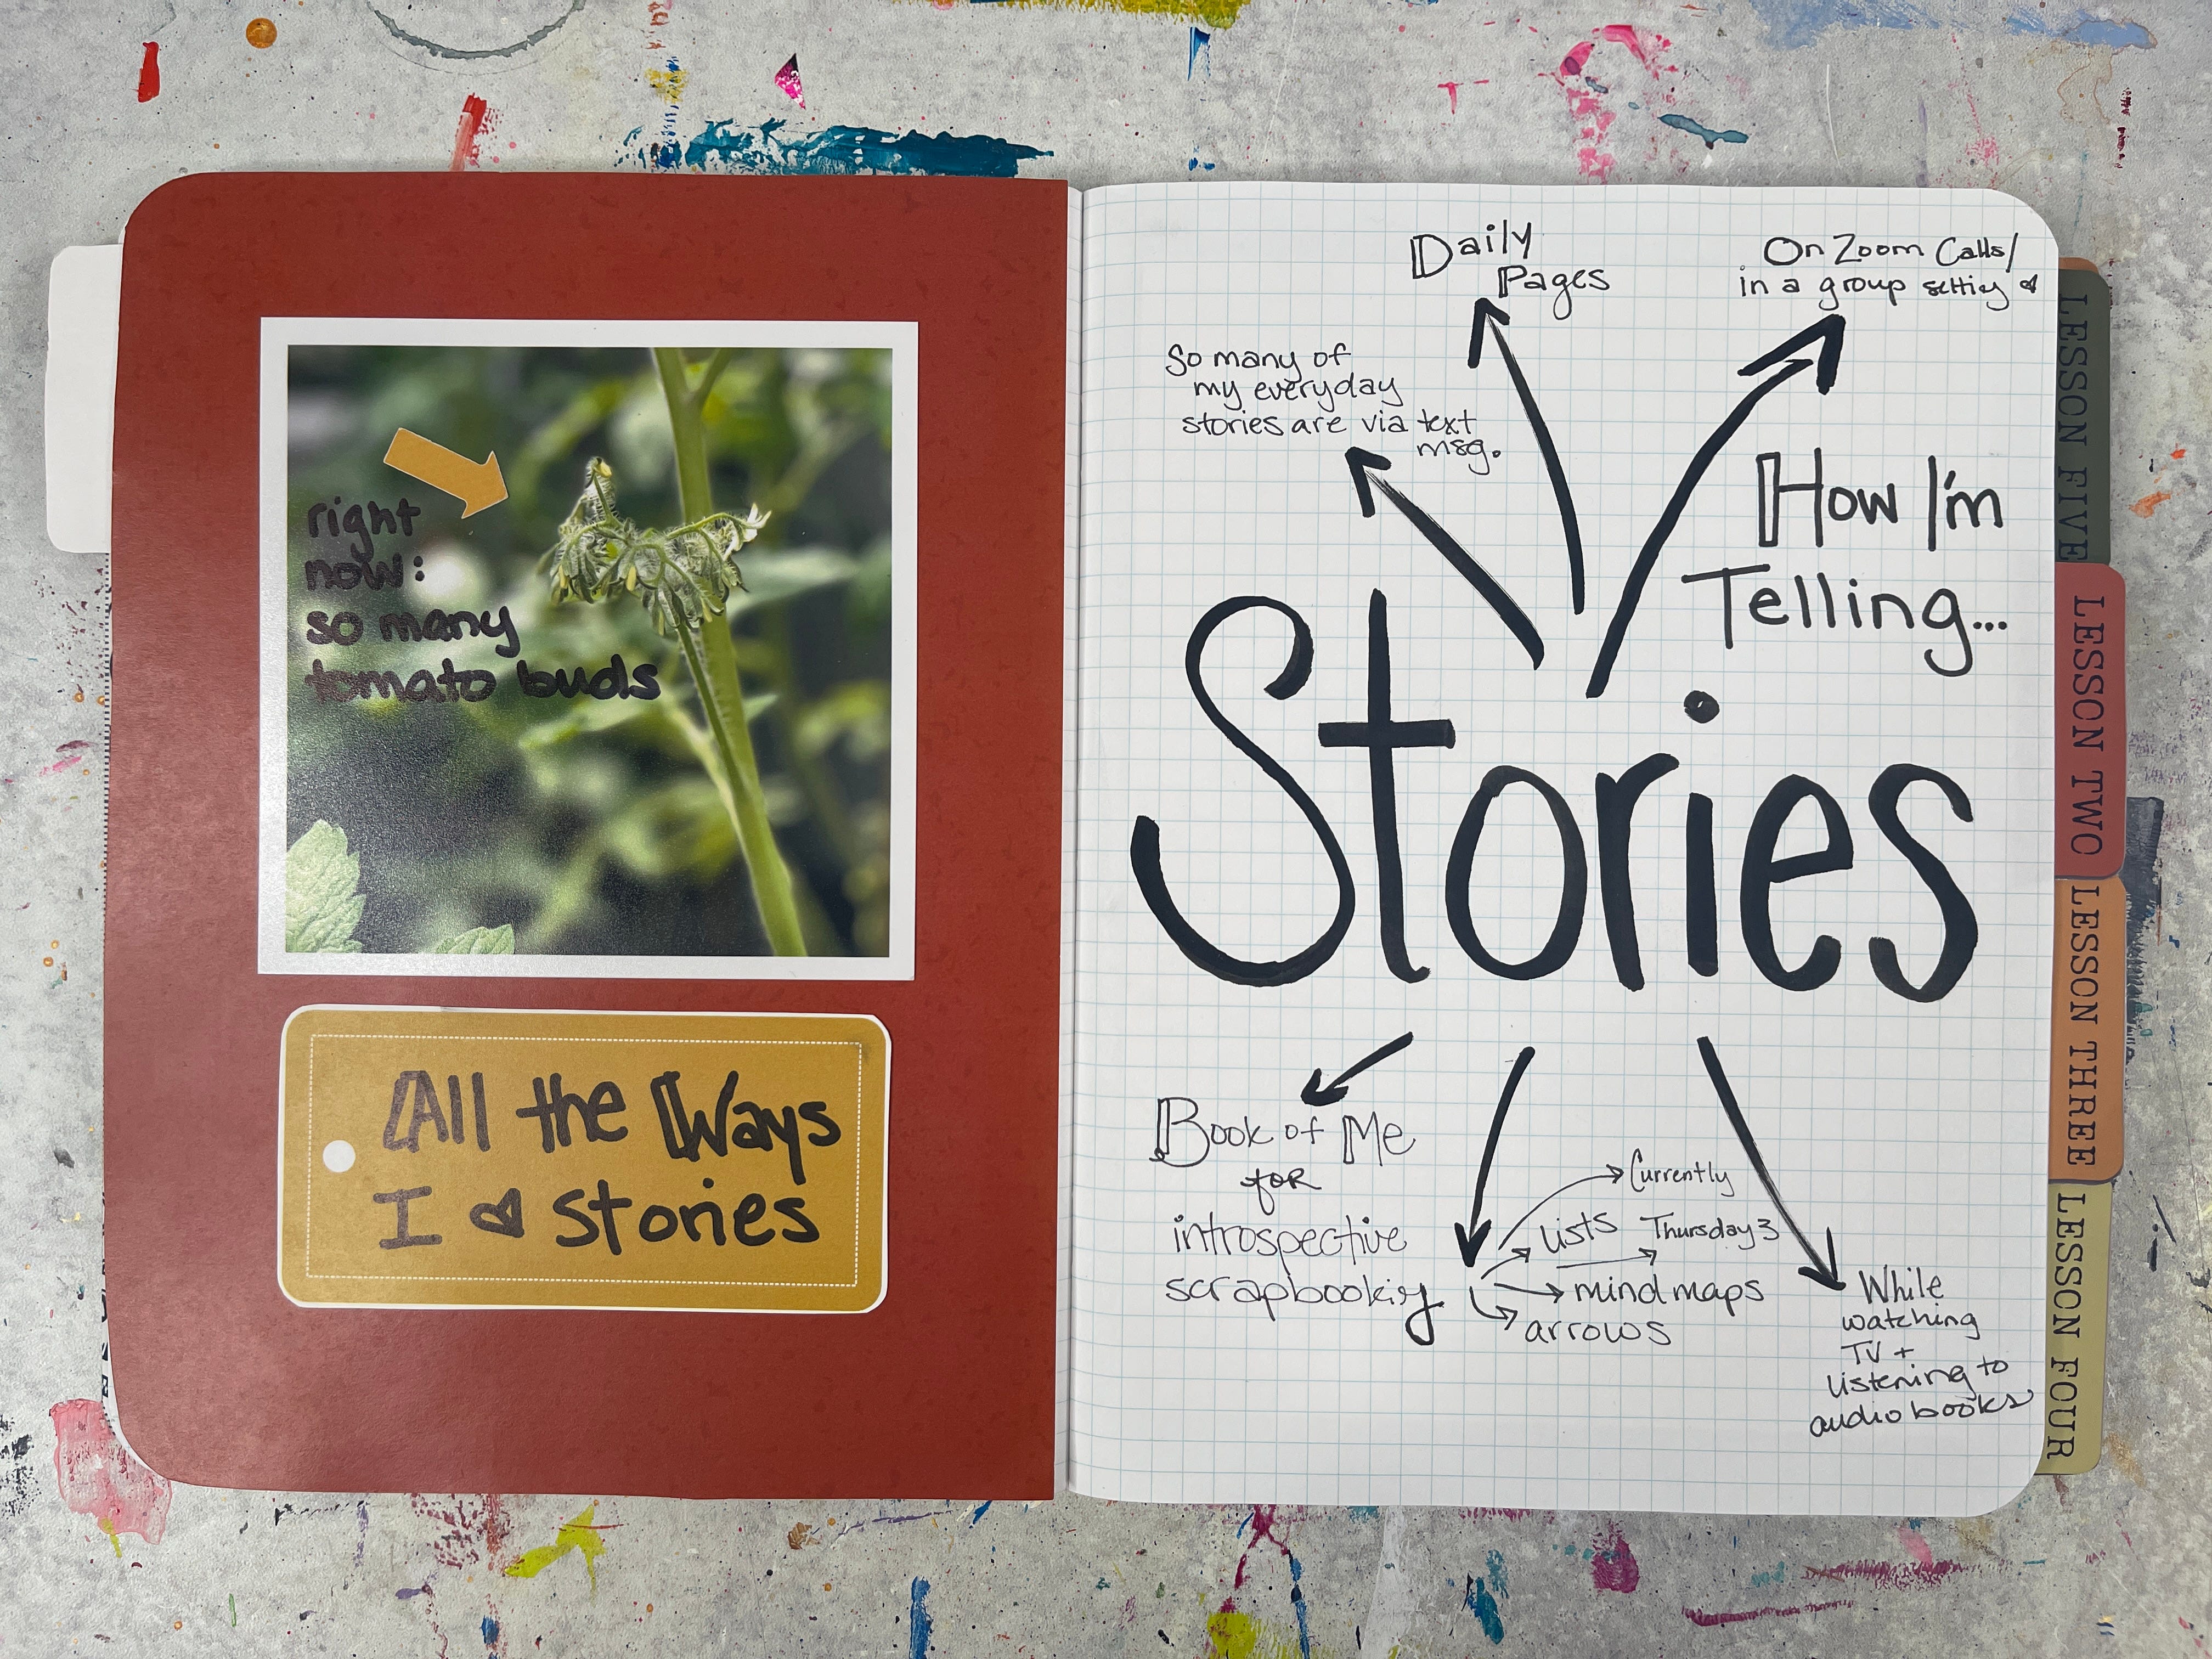 right
now:
so many
tomato buds
All the Ways
I ♥ stories
Daily
Pages
On Zoom Calls/
in a group setting ♥
So many of
my everyday
stories are via text
msg.
How I'm
Telling...
Stories
Book of Me
for
introspective
scrapbooking
Currently
Lists Thursday 3
mind maps
arrows
While
watching
TV +
listening to
audio books
LESSON FIVE
LESSON TWO
LESSON THREE
LESSON FOUR